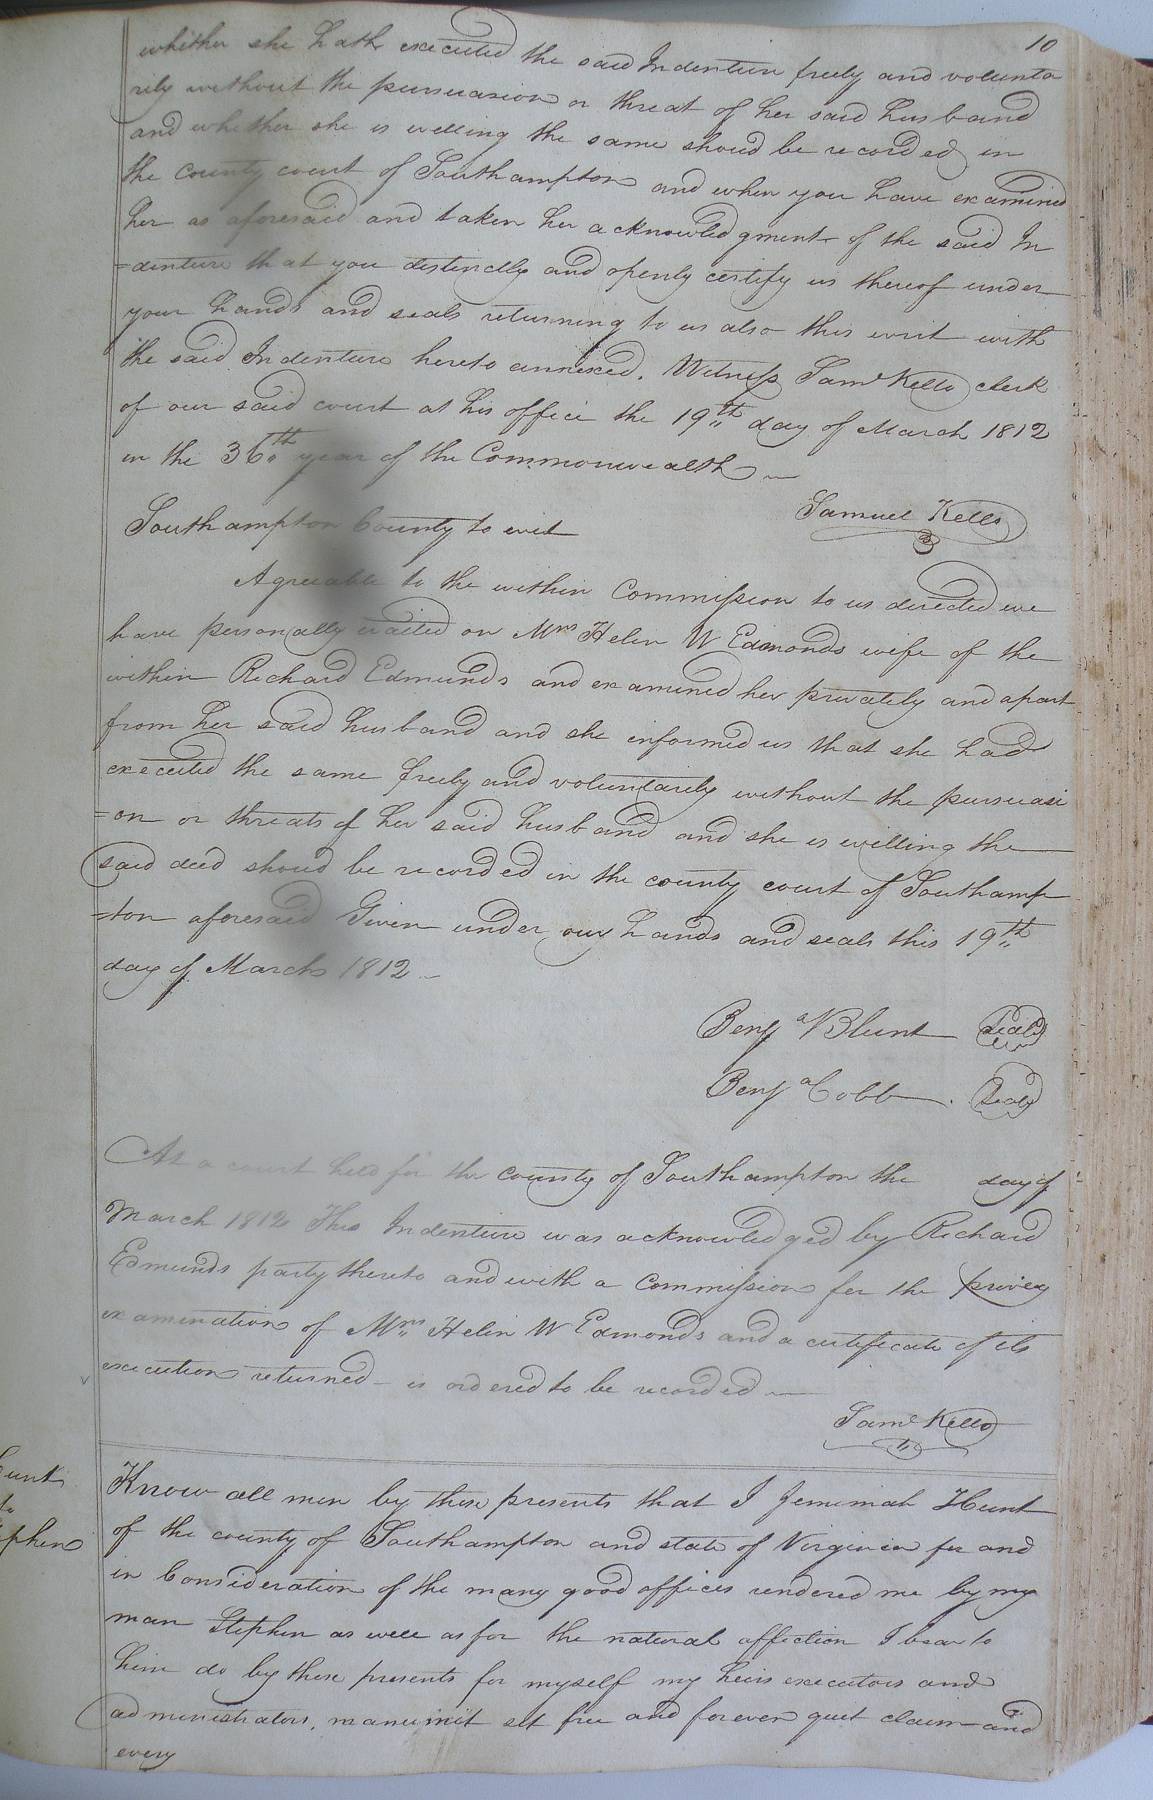 10
whither she hath executed the said Indenture freely and volunta
rily without the pursuasion or threat of her said husband
and whether she is welling the same should be recorded in
the county court of Southampton and when you have examined
her as aforesaid and taken her acknowledgment of the said In
=denture that you distinctly and openly certify us thereof under
your hands and seals returning to us also this writ with
the said Indenture hereto annexed. Witness Saml Kello clerk
of our said court at his office the 19th day of March 1812
in the 36th year of the Commonwealth
Samuel Kello
Southampton County to wit
Agreeable to the within Commission to us directed we
have personally waited on Mrs Helen W Edmonds wife of the
within Richard Edmunds and examined her privately and apart
from her said husband and she informed us that she had
executed the same freely and voluntarily without the pursuasi
=on or threats of her said husband and she is willing the
said deed should be recorded in the county court of Southamp
=ton aforesaid Given under our hands and seals this 19th
day of March 1812
Benja Blunt Seal
Benja Cobb Seal
At a court held for the county of Southampton the day of
March 1812 This Indenture was acknowledged by Richard
Edmunds party thereto and with a Commission for the privey
examination of Mrs Helen W Edmonds and a certificate of its
execution returned is ordered to be recorded
Saml Kello
Know all men by these presents that I Jemimah Hunt
of the county of Southampton and state of Virginia for and
in Consideration of the many good offices rendered me by my
man Stephen as well as for the natural affection I bear to
him do by these presents for myself my heirs executors and
administrators, manumit set free and forever quit claim and
every
to